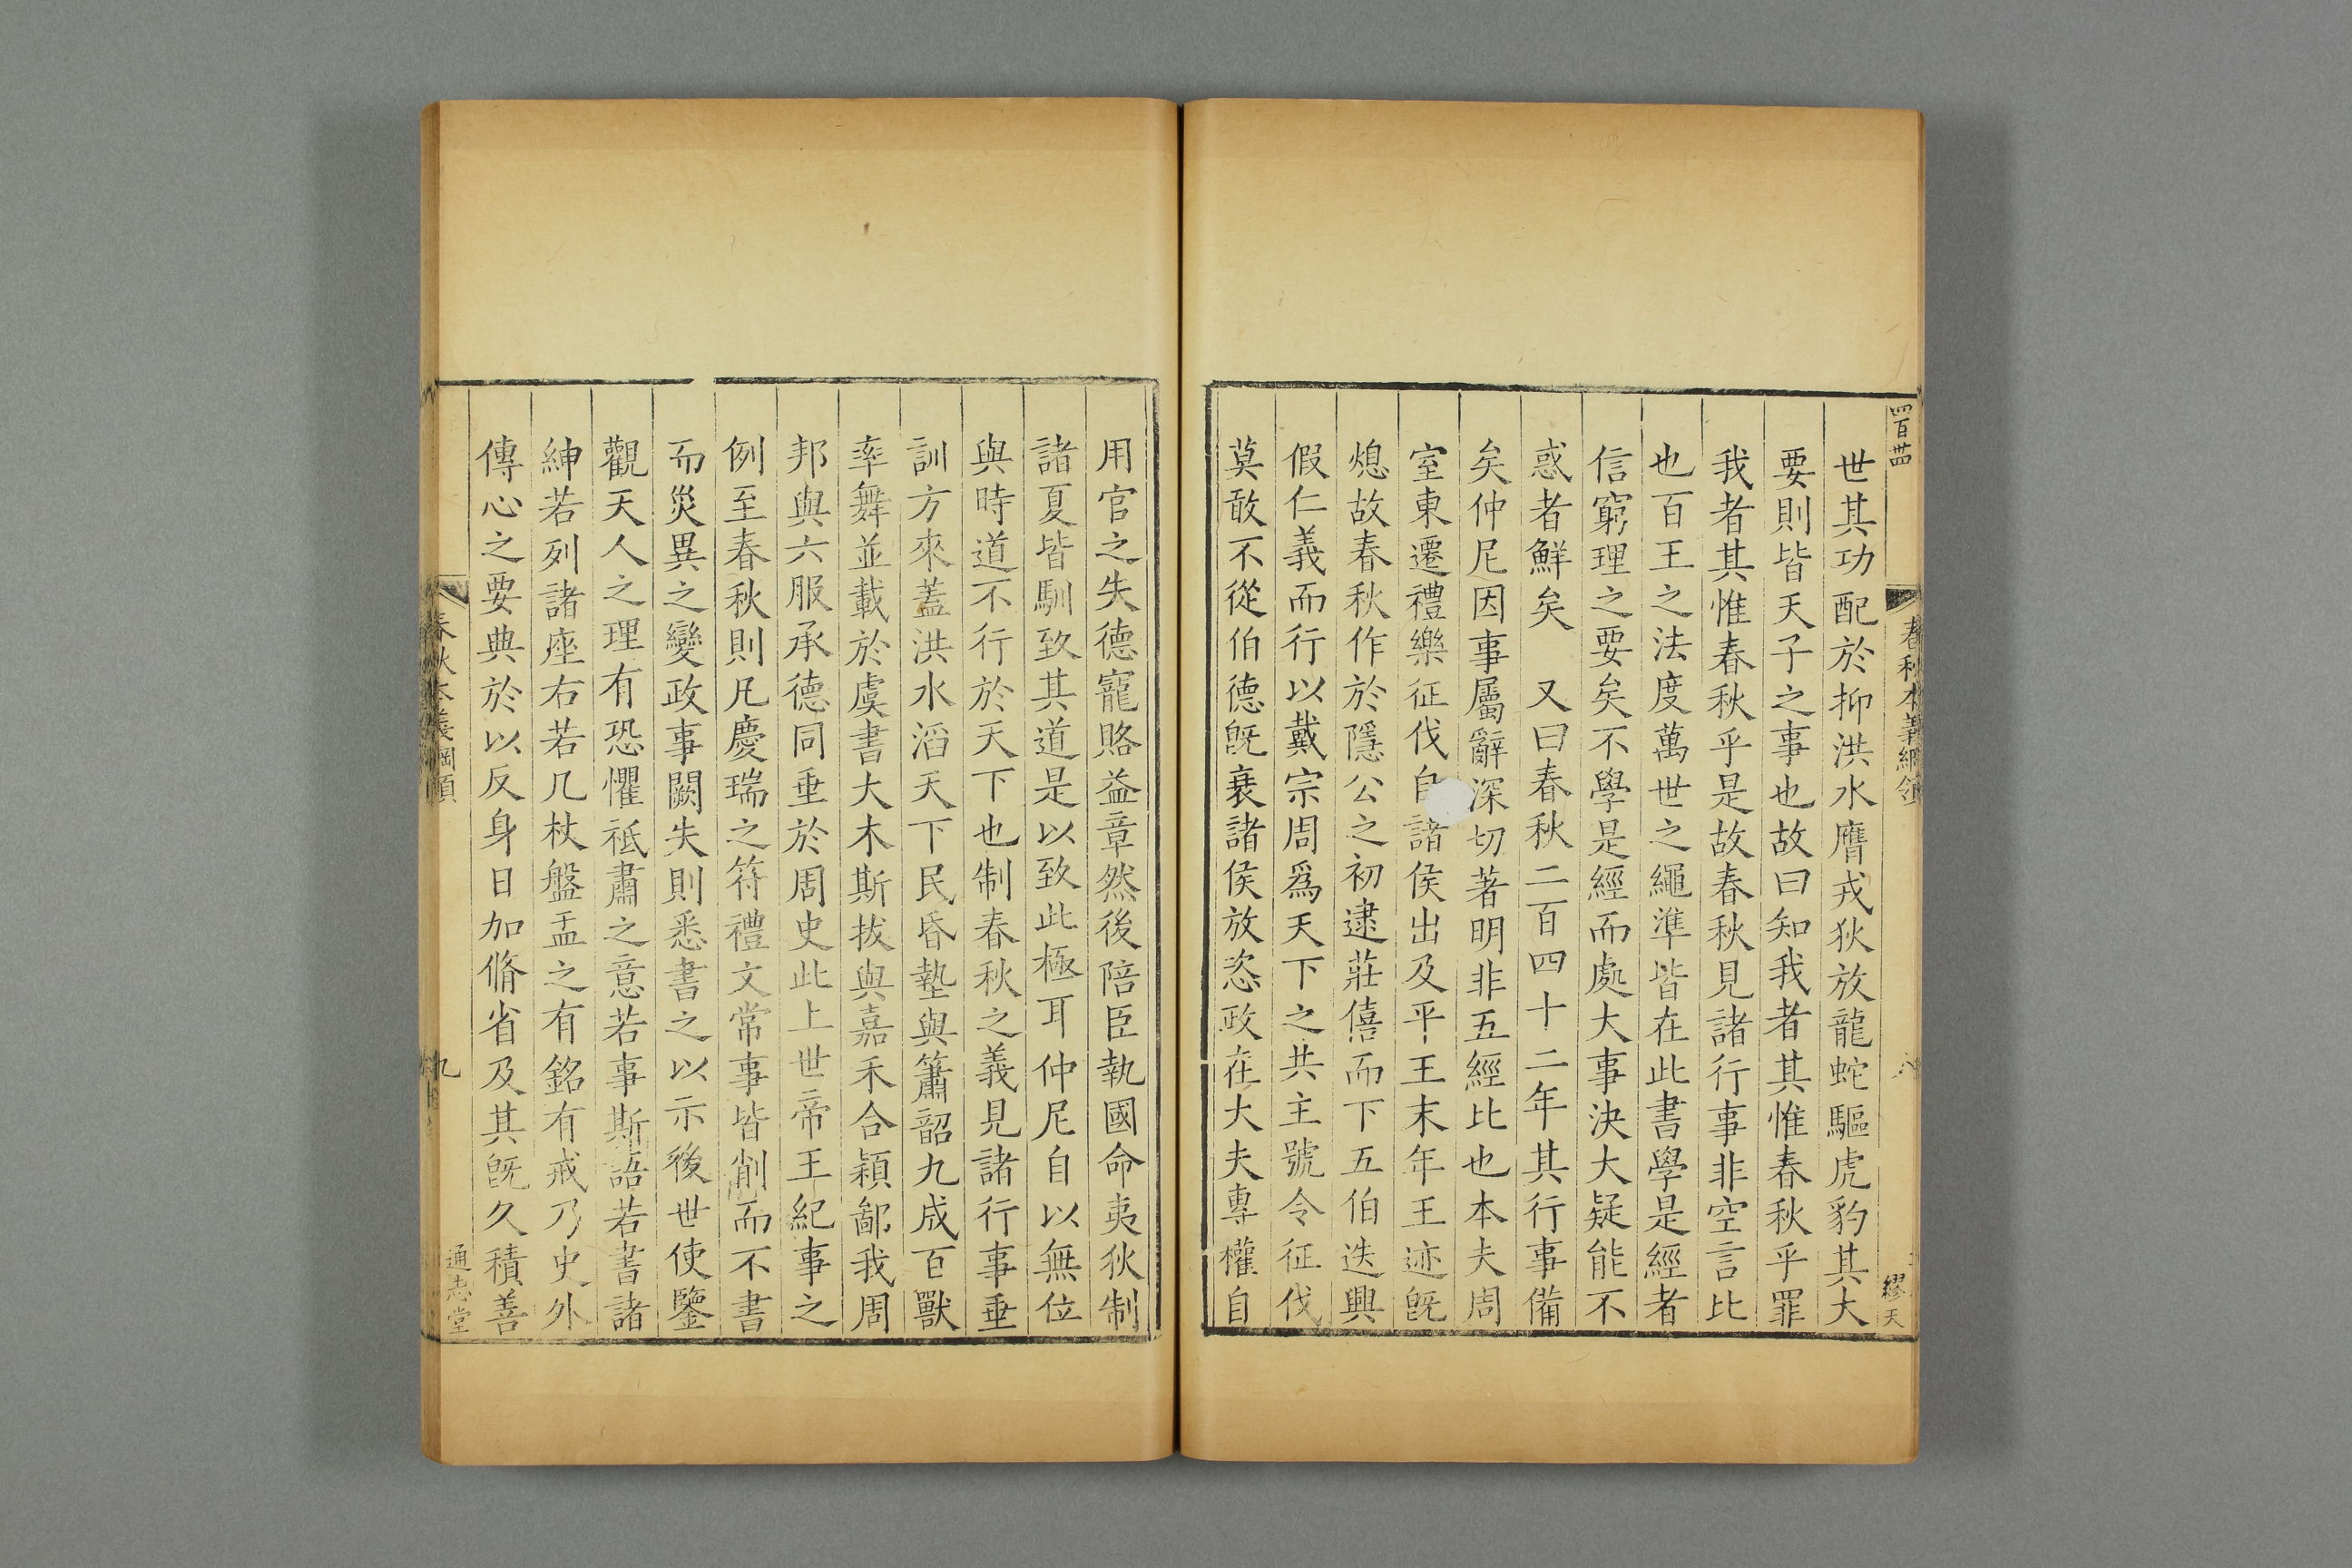 四百卌
春秋本義綱領
八
繆天
世其功配於抑洪水膺戎狄放龍蛇驅虎豹其大
要則皆天子之事也故曰知我者其惟春秋乎罪
我者其惟春秋乎是故春秋見諸行事非空言比
也百王之法度萬世之繩準皆在此書學是經者
信窮理之要矣不學是經而處大事決大疑能不
惑者鮮矣 又曰春秋二百四十二年其行事備
矣仲尼因事屬辭深切著明非五經比也本夫周
室東遷禮樂征伐自諸侯出及平王末年王迹旣
熄故春秋作於隱公之初逮莊僖而下五伯迭興
假仁義而行以戴宗周爲天下之共主號令征伐
莫敢不從伯德旣衰諸侯放恣政在大夫專權自
用官之失德寵賂益章然後陪臣執國命夷狄制
諸夏皆馴致其道是以致此極耳仲尼自以無位
與時道不行於天下也制春秋之義見諸行事垂
訓方來蓋洪水滔天下民昏墊與簫韶九成百獸
率舞並載於虞書大木斯拔與嘉禾合穎鄙我周
邦與六服承德同垂於周史此上世帝王紀事之
例至春秋則凡慶瑞之符禮文常事皆削而不書
而災異之變政事闕失則悉書之以示後世使鑒
觀天人之理有恐懼祗肅之意若事斯語若書諸
紳若列諸座右若几杖盤盂之有銘有戒乃史外
傳心之要典於以反身日加脩省及其旣久積善
春秋本義綱領
九
通志堂